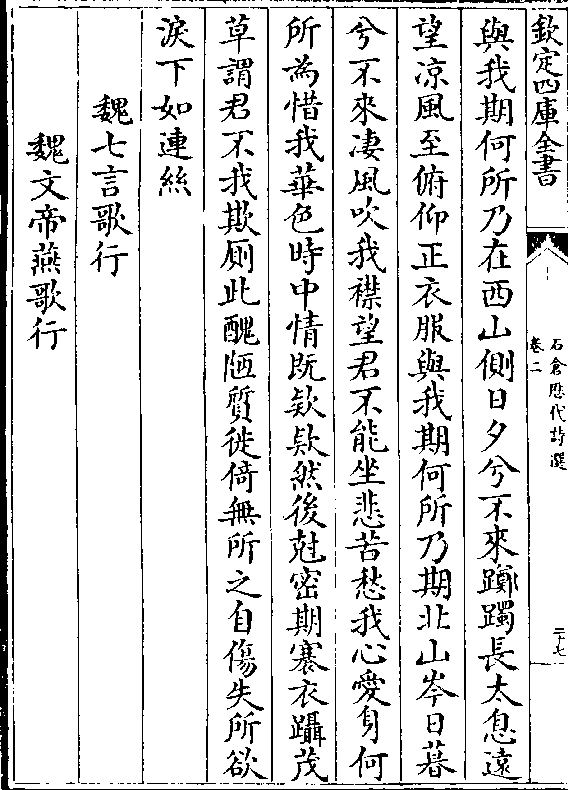 欽定四庫全書
石倉歷代詩選
卷二
二十七
與我期何所乃在西山側日夕兮不來躑躅長太息遠
望凉風至俯仰正衣服與我期何所乃期北山岑日暮
兮不來凄風吹我襟望君不能坐悲苦愁我心愛身何
所為惜我華色時中情既欵欵然後尅密期褰衣躡茂
草謂君不我欺厠此醜陋質徙倚無所之自傷失所欲
淚下如連絲
魏七言歌行
魏文帝燕歌行